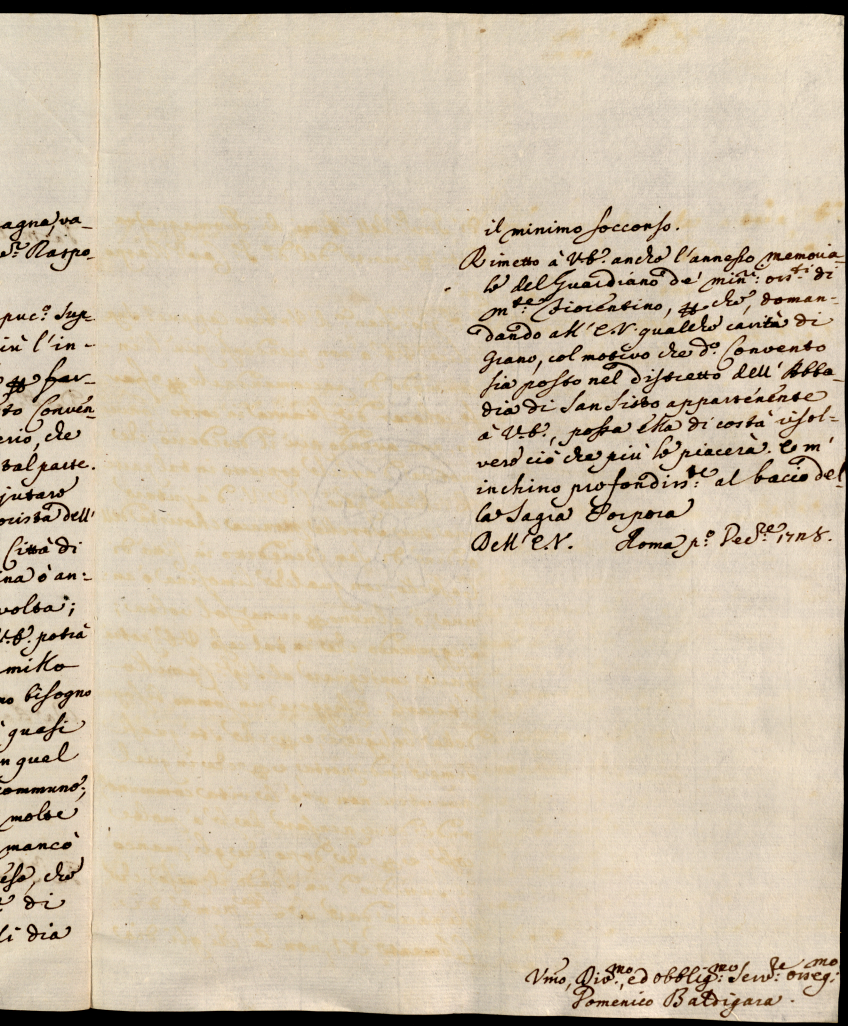 agna, va-
Raspo-
Sup-
l'in-
far-
to Conven-
erio, che
tal parte.
jutare
dell'
Città di
ina ò an-
volta;
potrà
mille
no bisogno
quasi
n quel
commune;
molte
mancò
che
di
li dia
il minimo soccorso.
Rimetto à V.E. anche l'annesso memoria-
le del Guardiano de' Min: oss:ti di
M:te Fiorentino, che, doman-
dando all'E.V. qualche carità di
grano, col motivo che d:o Convento
sia posto nel distretto dell'Abba-
dia di San Sisto appartenente
à V.E., possa ella di costà risol-
vere ciò che più le piacerà. E m'
inchino profondiss:te al bacio del-
la Sagra Porpora
Dell'E.V. Roma p:o Dec:e 1728.
Vmo, Div:mo, ed obblig:mo Serv:re osseq:mo
Domenico Baldigara.